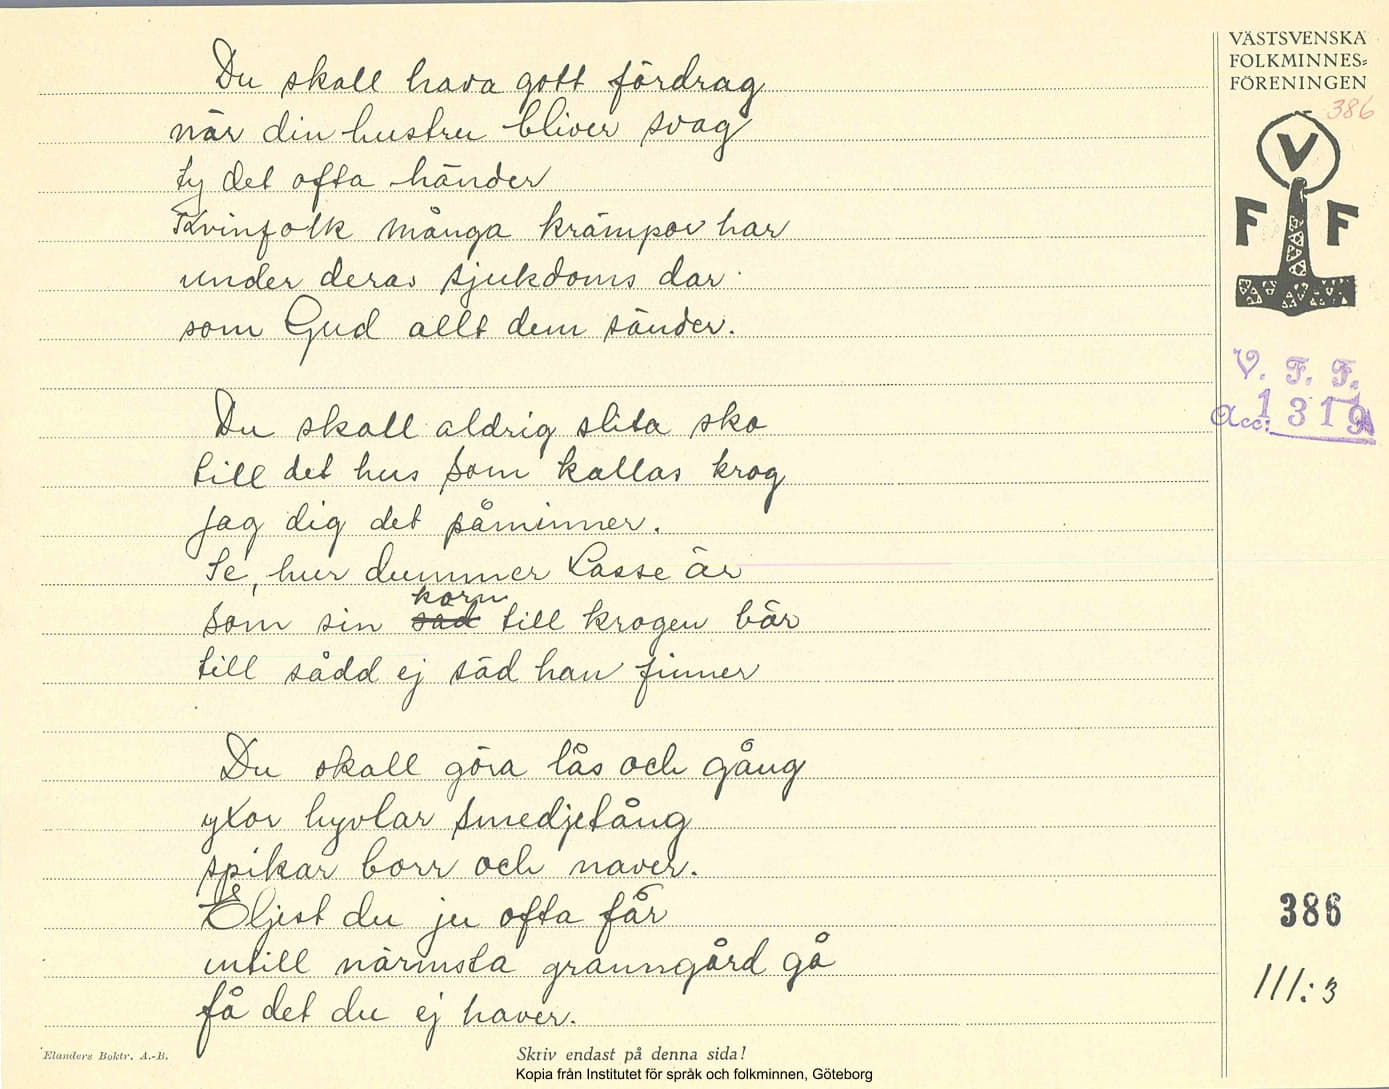 Du skall hava gott fördrag
när din hustru bliver svag
ty det ofta händer
Kvinfolk många krämpor har
under deras sjukdoms dar
som Gud allt dem sänder.
Du skall aldrig slita sko
till det hus som kallas krog
jag dig det påminner.
Se, hur dummer Lasse är
korn
som sin säd till krogen bär
till sådd ej säd han finner
Du skall göra lås och gång
yxor hyvlar smedjetång
spikar borr och naver.
Eljest du ju ofta får
intill närmsta granngård gå
få det du ej haver.
Elanders Boktr. A.-B.
Skriv endast på denna sida!
Kopia från Institutet för språk och folkminnen, Göteborg
VÄSTSVENSKA
FOLKMINNES=
FÖRENINGEN
386
V
F F
V. F. F.
Acc: 1319
386
III:3